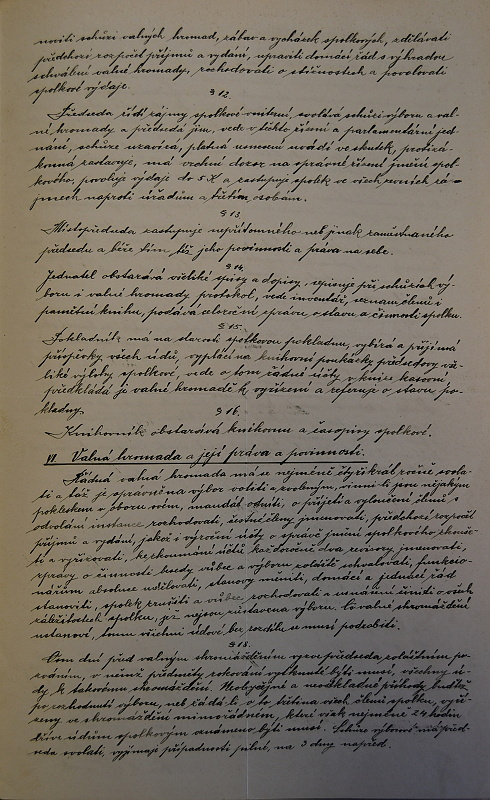 noviti schůzi valných hromad, zábav a vycházek spolkových, vzdělávati
předchozí rozpočet příjmů a vydání, upraviti domácí řád s výhradou
schválení valné hromady, rozhodovati o stížnostech a povolovati
spolkové výdaje.
§ 12.
Předseda řídí zájmy spolkové vnitřní, svolává schůzi výboru a val-
né hromady a předsedá jim, vede v těchto řízení a parlamentární jed-
nání, schůze uzavírá, platná usnesení uvádí ve skutek, protizá-
konná zastavuje, má vrchní dozor na správné řízení jmění spol-
kového, povoluje výdaje do 5 K a zastupuje spolek ve všech zevních zá-
jmech naproti úřadům a třetím osobám.
§ 13.
Místopředseda zastupuje nepřítomného neb jinak zaneprázdněného
předsedu a béře tím též jeho povinnosti a práva na sebe.
§ 14.
Jednatel obstarává veškeré spisy a dopisy, sepisuje při schůzích vý-
boru i valné hromady protokol, vede inventář, seznam členů i
pamětní knihu, podává celoroční zprávu o stavu a činnosti spolku.
§ 15.
Pokladník má na starosti spolkovou pokladnu, vybírá a přijímá
příspěvky všech údů, vyplácí na knihovní poukázky předsedovy ve-
škeré výlohy spolkové, vede o tom řádné účty v knize kasovní
předkládá je valné hromadě k vyřízení a referuje o stavu po-
kladny.
§ 16.
Knihovník obstarává knihovnu a časopisy spolkové.
VI. Valná hromada a její práva a povinnosti.
Řádná valná hromada má se nejméně čtyřikrát ročně svola-
ti a táž je oprávněna výbor voliti a zvoleným, vinni-li jsou nějakým
pokleskem v oboru svém, mandát odníti, o přijetí a vyloučení členů s
odvolání instance rozhodovati, čestné členy jmenovati, předchozí rozpočet
příjmů a vydání, jakož i výroční účty o správě jmění spolkového zkouše-
ti a vyřizovati, ke zkoumání účtů každoročně dva revisory jmenovati,
zprávy o činnosti besedy vůbec a výboru zvláště schvalovati, funkcio-
nářům absolutorium udělovati, stanovy měniti, domácí a jednací řád
stanoviti, spolek zrušiti a vůbec rozhodovati a usnášení činiti o všech
záležitostech spolku, jež nejsou zůstaveny výboru. Co valné shromáždění
ustanoví, tomu všichni údové bez rozdílu se musí podrobiti.
§ 18.
Osm dní před valným shromážděním vyzve předseda zvláštním po-
zváním, v němž předměty rokování vytknuté býti musí, všechny ú-
dy k takovému shromáždění. Neobyčejné a neodkladné příhody buďtež
po rozhodnutí výboru, neb žádá-li o to třetina všech členů spolku, vyří-
zeny ve shromáždění mimořádném, které však nejméně 24 hodin
dříve údům spolkovým oznámeno býti musí. Schůze výborové má před-
seda svolati, vyjímají případnosti pilné, na 3 dny napřed.